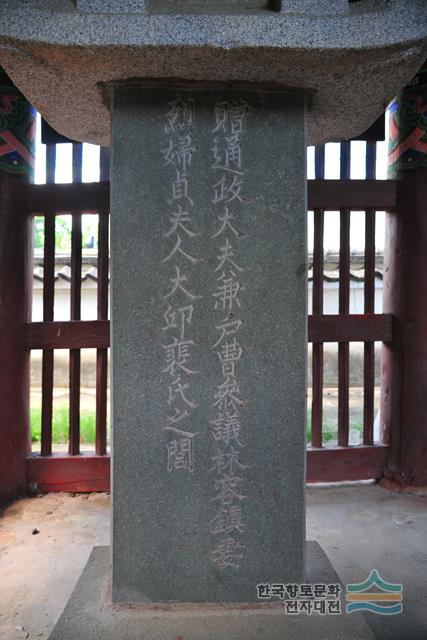 贈通政大夫兼戶曹參議林容鎮妻
烈婦貞夫人大邱裵氏之閭
한국향토문화
전자대전